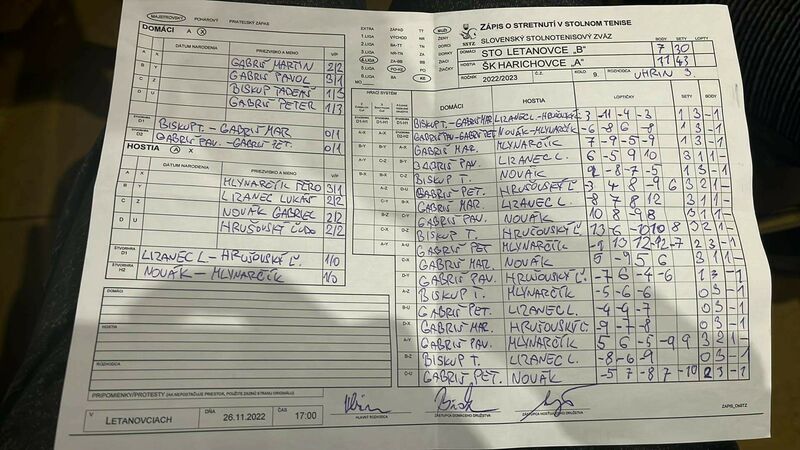 MAJETROVSKÝ POHÁROVÝ PRIATEĽSKÝ ZÁPAS
DOMÁCI A X
DÁTUM NARODENIA PRIEZVISKO A MENO V/P
A X GABRIŠ MARTIN 2/2
B Y GABRIŠ PAVOL 3/1
C Z BISKUP TADEÁŠ 1/3
D U GABRIŠ PETER 1/3
ŠTVORHRA D1 BISKUP T. - GABRIŠ MAR. 0/1
ŠTVORHRA D2 GABRIŠ PAV. - GABRIŠ PET. 0/1
HOSTIA A X
DÁTUM NARODENIA PRIEZVISKO A MENO V/P
MLYNARČÍK FERO 3/1
B Y LIZANEC LUKÁŠ 2/2
C Z NOVÁK GABRIEL 2/2
D U HRUŠOVSKÝ ĽUDO 2/2
ŠTVORHRA LIZANEC L. - HRUŠOVSKÝ Ľ. 1/0
ŠTVORHRA H2 NOVÁK - MLYNARČÍK 1/0
DOMÁCI
HOSTIA
ROZHODCA
PRIPOMIENKY/PROTESTY
V LETANOVCIACH DŇA 26.11.2022 ČAS 17:00
EXTRA ZÁPAD TT
1.LIGA VÝCHOD NR
2.LIGA BA-TT TN
3.LIGA NR-TN ZA
4.LIGA ZA-BB BB
5.LIGA PO-KE PO
BA KE
MUŽI
ŽENY
DORCI
DORKY
ŽIACI
ZÁPIS O STRETNUTÍ V STOLNOM TENISE
SSTZ SLOVENSKÝ STOLNOTENISOVÝ ZVÄZ BODY SETY LOPTY
DOMÁCI STO LETANOVCE „B" 7 30
HOSTIA ŠK HARICHOVCE „A" 11 43
ROČNÍK 2022/2023 Č.Z. KOLO 9. ROZHODCA UHRIN J.
HRACÍ SYSTÉM DOMÁCI HOSTIA LOPTIČKY SETY BODY
BISKUP T. - GABRIŠ MAR LIZANEC L. - HRUŠOVSKÝ 3 -11 -4 -3 1 3 - 1
GABRIŠ PAV - GABRIŠ PET. NOVÁK - MLYNARČÍK -6 -8 6 -8 1 3 - 1
GABRIŠ MAR. MLYNARČÍK 7 -9 -5 -9 1 3 - 1
GABRIŠ PAV. LIZANEC L. 6 -5 9 10 3 1 1 -
BISKUP T. NOVÁK -8 -7 -5 1 3 - 1
GABRIŠ PET. HRUŠOVSKÝ Ľ -3 4 8 -9 6 3 2 1 -
GABRIŠ MAR. LIZANEC L. -8 7 8 12 3 1 1 -
GABRIŠ PAV. NOVÁK 10 8 -9 8 3 1 1 -
BISKUP T. HRUŠOVSKÝ Ľ 8 3 2 1 -
GABRIŠ PET MLYNARČÍK 10 -7 2 3 - 1
GABRIŠ MAR. NOVÁK 9 -9 5 6 3 1 1 -
GABRIŠ PAV. HRUŠOVSKÝ Ľ. -7 6 -4 -6 1 3 - 1
BISKUP T. MLYNARČÍK -5 -6 -6 0 3 - 1
GABRIŠ PET. LIZANEC L. -4 -9 -7 0 3 - 1
GABRIŠ MAR. HRUŠOVSKÝ Ľ. -9 -7 -8 0 3 - 1
GABRIŠ PAV. MLYNARČÍK 5 6 -5 -9 9 3 2 1 -
BISKUP T. LIZANEC L. -8 -6 -9 0 3 - 1
GABRIŠ PET. NOVÁK -5 7 -8 7 -10 2 3 - 1
HLAVNÝ ROZHODCA
ZÁSTUPCA DOMÁCEHO DRUŽSTVA
ZÁSTUPCA HOSŤUJÚCEHO DRUŽSTVA